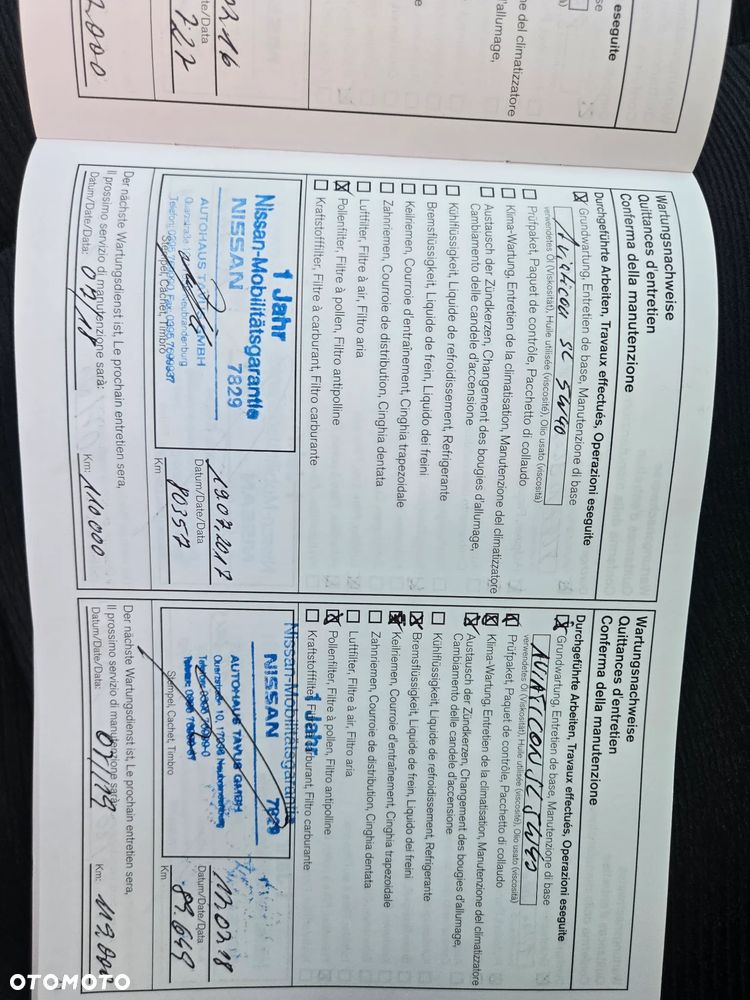 eseguite
del climatizzatore
d'allumage,
te/Data
Wartungsnachweise
Quittances d'entretien
Conferma della manutenzione
Durchgeführte Arbeiten, Travaux effectués, Operazioni eseguite
Grundwartung, Entretien de base, Manutenzione di base
Aviaticon SL 5W40
verwendetes Öl (Viskosität), Huile utilisée (viscosité), Olio usato (viscosità)
Prüfpaket, Paquet de contrôle, Pacchetto di collaudo
Klima-Wartung, Entretien de la climatisation, Manutenzione del climatizzatore
Austausch der Zündkerzen, Changement des bougies d'allumage,
Cambiamento delle candele d'accensione
Kühlflüssigkeit, Liquide de refroidissement, Refrigerante
Bremsflüssigkeit, Liquide de frein, Liquido dei freini
Keilriemen, Courroie d'entraînement, Cinghia trapezoidale
Zahnriemen, Courroie de distribution, Cinghia dentata
Luftfilter, Filtre à air, Filtro aria
Pollenfilter, Filtre à pollen, Filtro antipolline
Kraftstofffilter, Filtre à carburant, Filtro carburante
1 Jahr
Nissan-Mobilitätsgarantie
NISSAN 7829
AUTOHAUS GMBH
Neubrandenburg
Stempel, Cachet, Timbro
19.07.2017
Datum/Date/Data
80357
Km
Der nächste Wartungsdienst ist, Le prochain entretien sera,
Il prossimo servizio di manutenzione sarà:
Datum/Date/Data: 07/18
Km: 110000
Wartungsnachweise
Quittances d'entretien
Conferma della manutenzione
Durchgeführte Arbeiten, Travaux effectués, Operazioni eseguite
Grundwartung, Entretien de base, Manutenzione di base
AVIATICON SL 5W40
verwendetes Öl (Viskosität), Huile utilisée (viscosité), Olio usato (viscosità)
Prüfpaket, Paquet de contrôle, Pacchetto di collaudo
Klima-Wartung, Entretien de la climatisation, Manutenzione del climatizzatore
Austausch der Zündkerzen, Changement des bougies d'allumage,
Cambiamento delle candele d'accensione
Kühlflüssigkeit, Liquide de refroidissement, Refrigerante
Bremsflüssigkeit, Liquide de frein, Liquido dei freini
Keilriemen, Courroie d'entraînement, Cinghia trapezoidale
Zahnriemen, Courroie de distribution, Cinghia dentata
Luftfilter, Filtre à air, Filtro aria
Pollenfilter, Filtre à pollen, Filtro antipolline
Kraftstofffilter, Filtre à carburant, Filtro carburante
1 Jahr
Nissan-Mobilitätsgarantie
NISSAN 7829
AUTOHAUS TAVUS GMBH
10, 17036 Neubrandenburg
Stempel, Cachet, Timbro
Datum/Date/Data
89.649
Km
Der nächste Wartungsdienst ist, Le prochain entretien sera,
Il prossimo servizio di manutenzione sarà:
Datum/Date/Data: 07/19
Km: 119.000
OTOMOTO